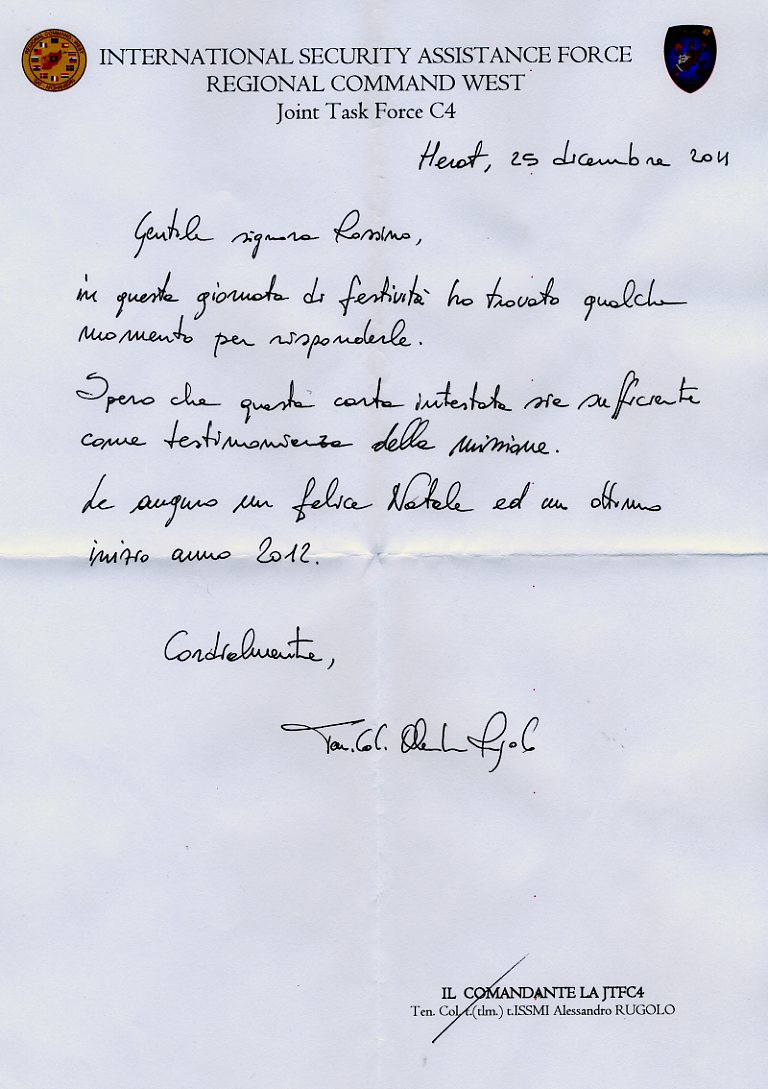 INTERNATIONAL SECURITY ASSISTANCE FORCE
REGIONAL COMMAND WEST
Joint Task Force C4
Herat, 25 dicembre 2011
Gentile signora Rossino,
in questa giornata di festività ho trovato qualche
momento per risponderle.
Spero che questa carta intestata sia sufficiente
come testimonianza della missione.
Le auguro un felice Natale ed un ottimo
inizio anno 2012.
Cordialmente,
Ten. Col.
IL COMANDANTE LA JTFC4
Ten. Col. t.(tlm.) t.ISSMI Alessandro RUGOLO